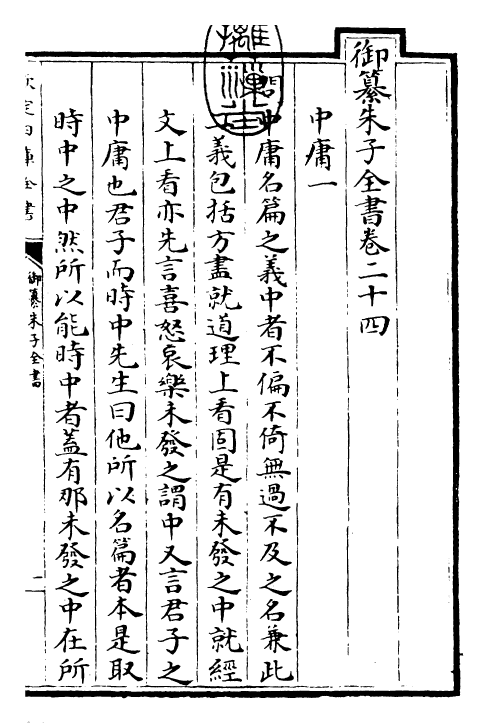 御纂朱子全書卷二十四
中庸一
問中庸名篇之義中者不偏不倚無過不及之名兼此
義包括方盡就道理上看固是有未發之中就經
文上看亦先言喜怒哀樂未發之謂中又言君子之
中庸也君子而時中先生曰他所以名篇者本是取
時中之中然所以能時中者蓋有那未發之中在所
欽定四庫全書
御纂朱子全書